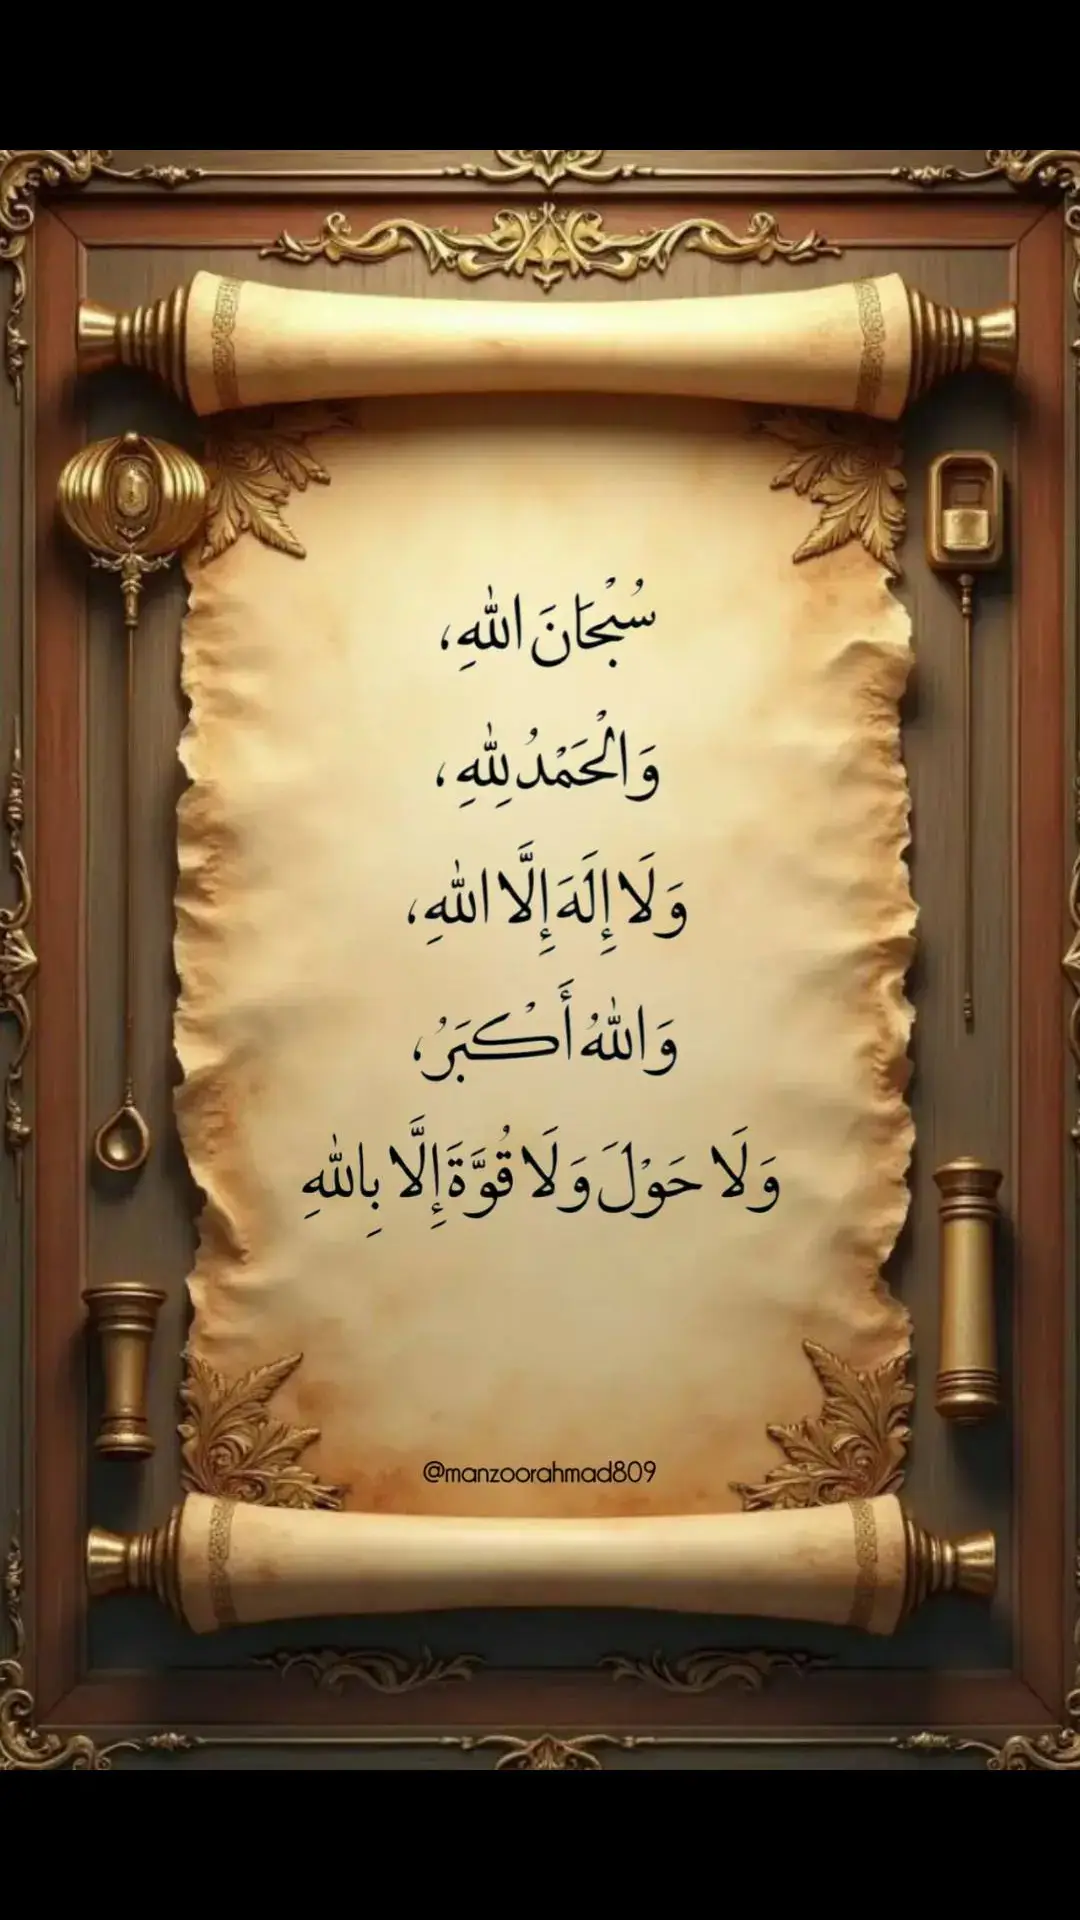 سُبْحَانَ اللهِ،
وَالْحَمْدُ لِلّٰهِ،
وَلَا إِلَهَ إِلَّا اللهِ،
وَاللهُ أَكْبَرُ،
وَلَا حَوْلَ وَلَا قُوَّةَ إِلَّا بِاللهِ
@manzoorahmad809